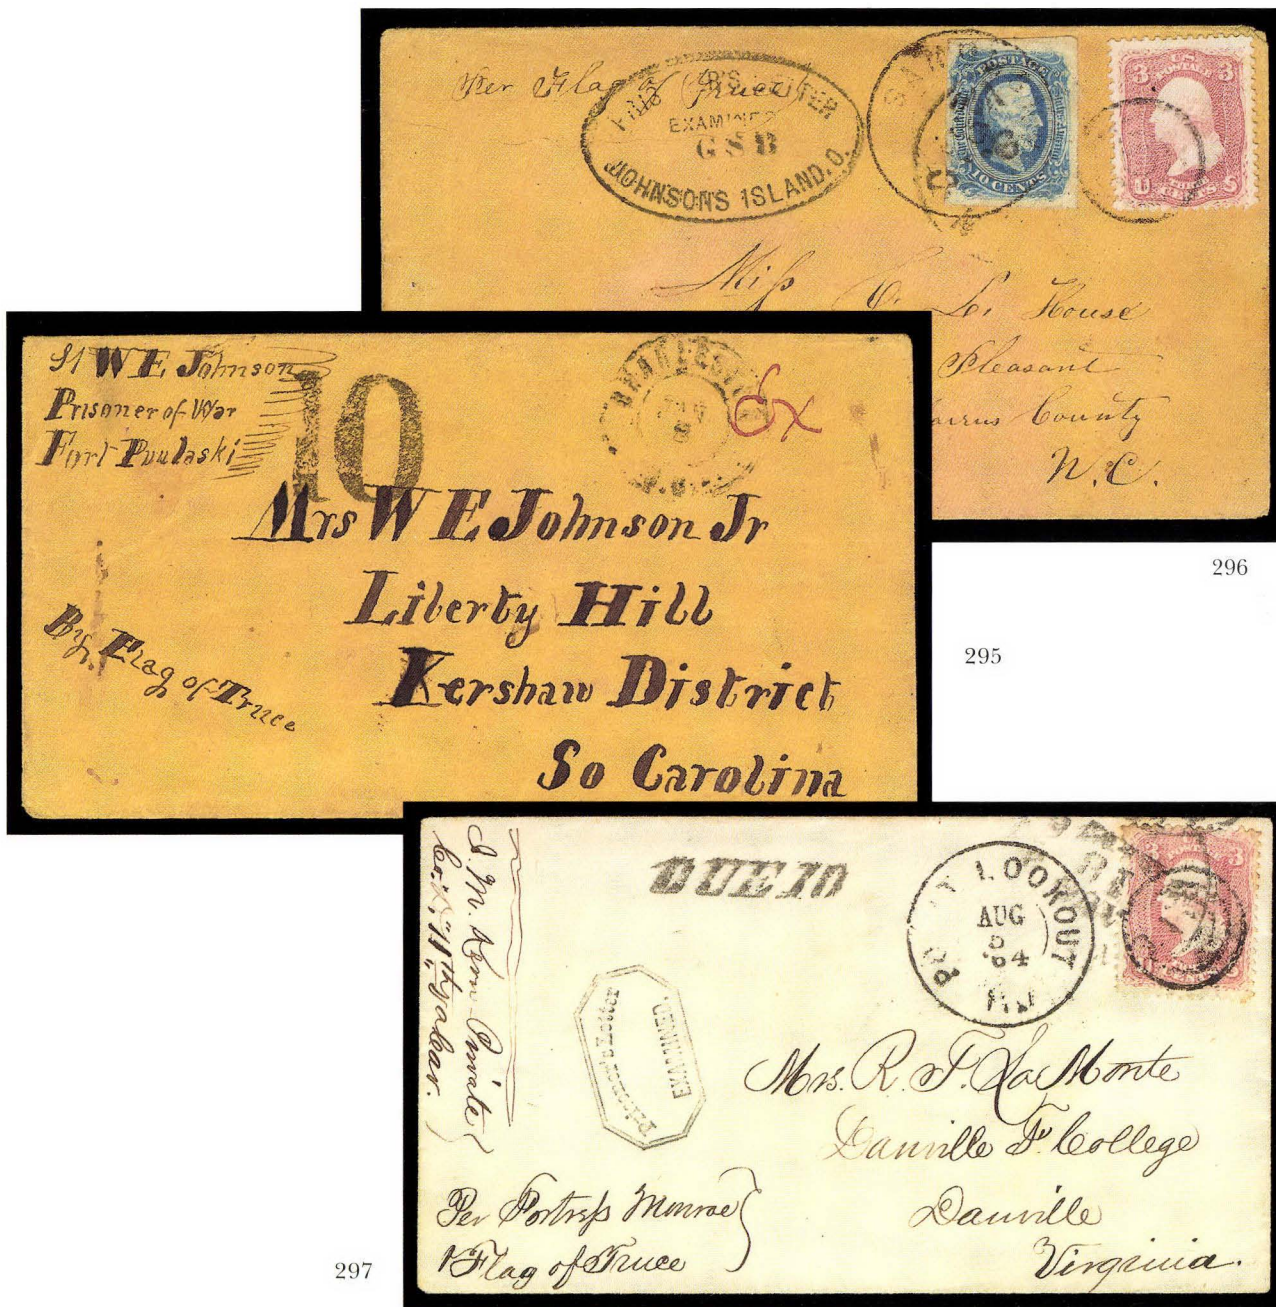 Per Flag of Truce
EXAMINED
GSB
JOHNSON'S ISLAND, O.
POSTAGE
10 CENTS
3 3
U S
CENTS
Miss C. L. House
Pleasant
County
N.C.
296
St W E Johnson
Prisoner of War
Fort Puulaski
10
CHARLESTON
Mrs W E Johnson Jr
Liberty Hill
Kershaw District
So Carolina
By Flag of Truce
295
DUE 10
LOOKOUT
AUG
5
'64
3
Private
Prisoner's Letter
EXAMINED.
Mrs. R. F. La Monte
Danville F. College
Danville
Virginia.
Per Fortress Monroe
Flag of Truce
297